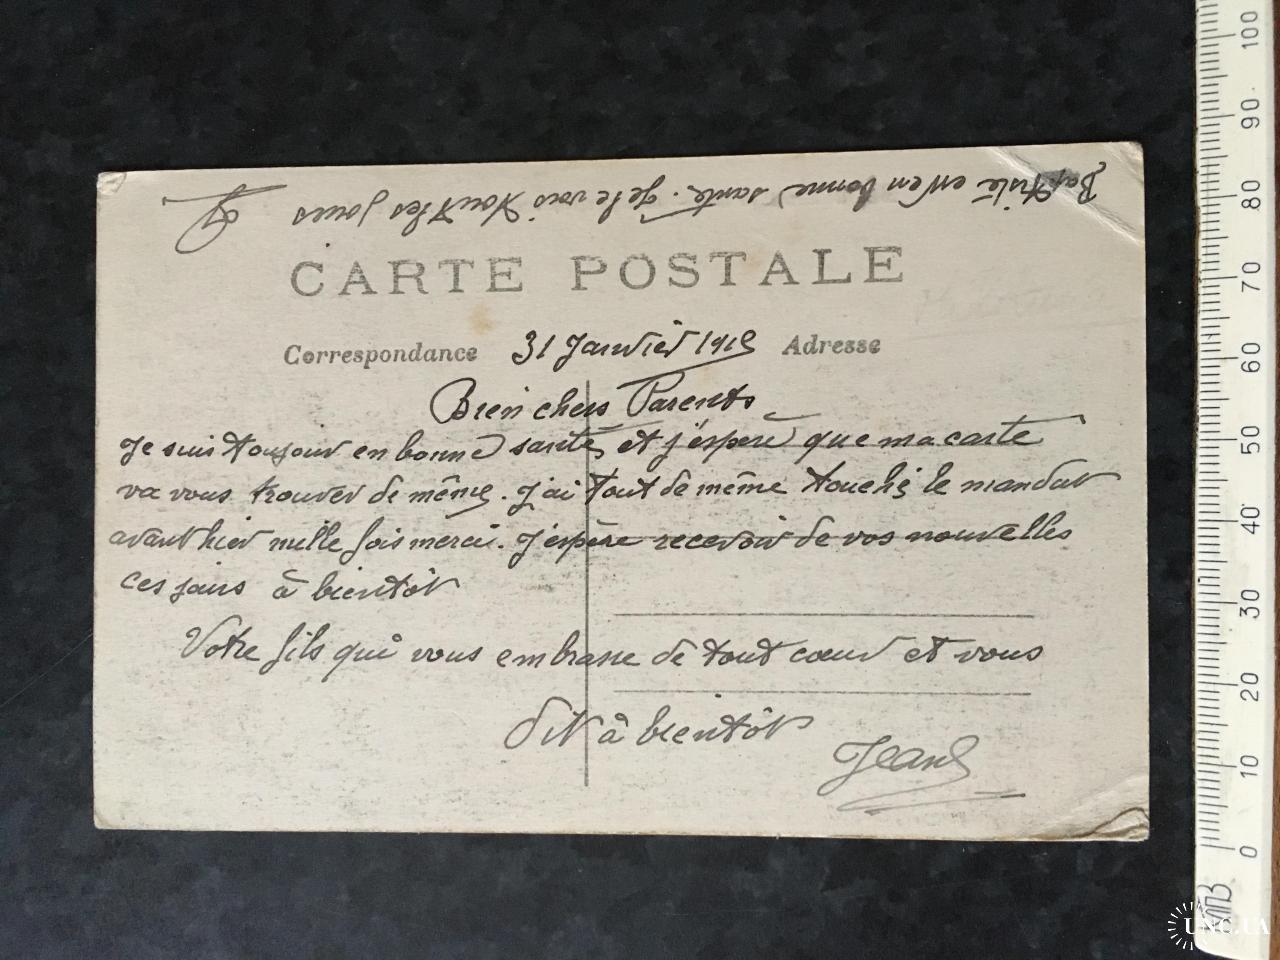 Baptiste est en bonne santé. Je le vois tout les jours
CARTE POSTALE
Correspondance 31 Janvier 1915 Adresse
Bien chers Parents
Je suis toujour en bonne santé, et j'éspère que ma carte
va vous trouver de même. J'ai tout de même touché le mandat
avant hier mille fois merci. J'espère recevoir de vos nouvelles
ces jours à bientôt
Votre fils qui vous embrasse de tout coeur et vous
dit à bientôt
Jean
100
90
80
70
60
50
40
30
20
10
0
UNC.UA